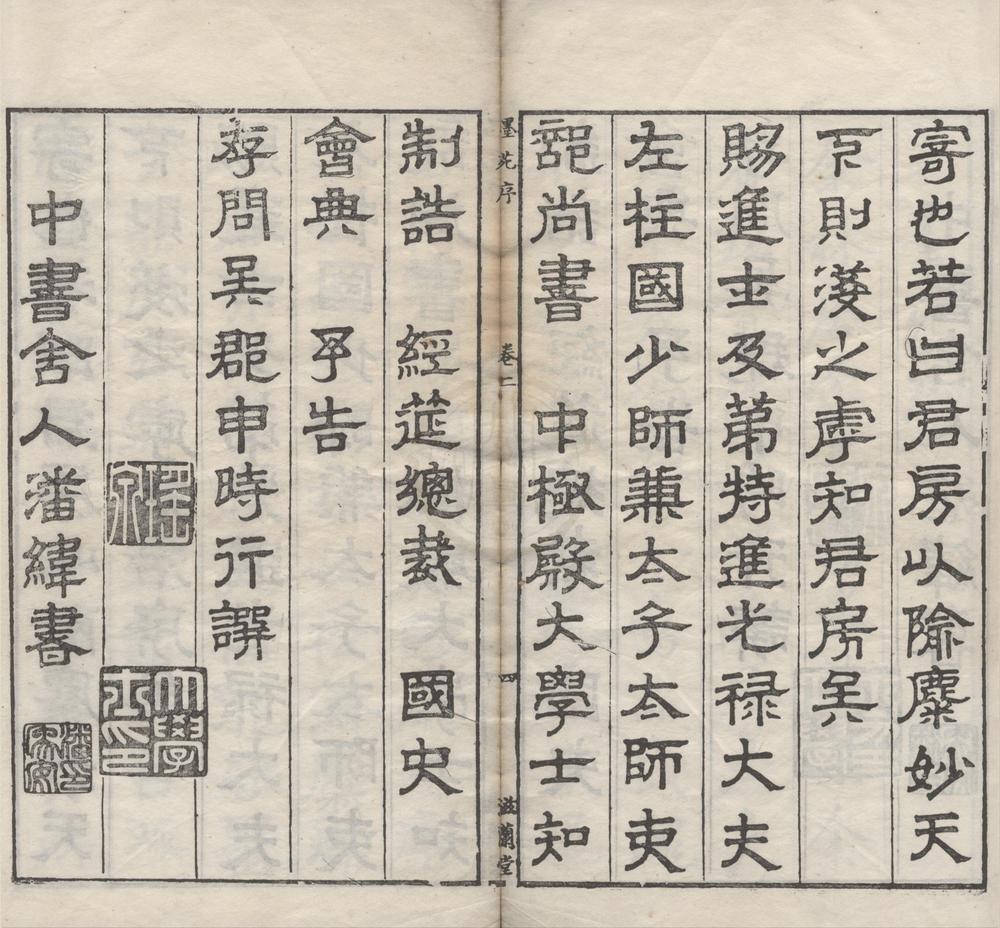 寄也若曰君房以隃麋妙天
下則淺之虖知君房矣
賜進士及第特進光祿大夫
左柱國少師兼太子太師吏
部尚書 中極殿大學士知
墨苑序 卷二 四 滋蘭堂
制誥 經筵總裁 國史
會典 予告
存問吳郡申時行譔
大學士印
中書舍人潘緯書